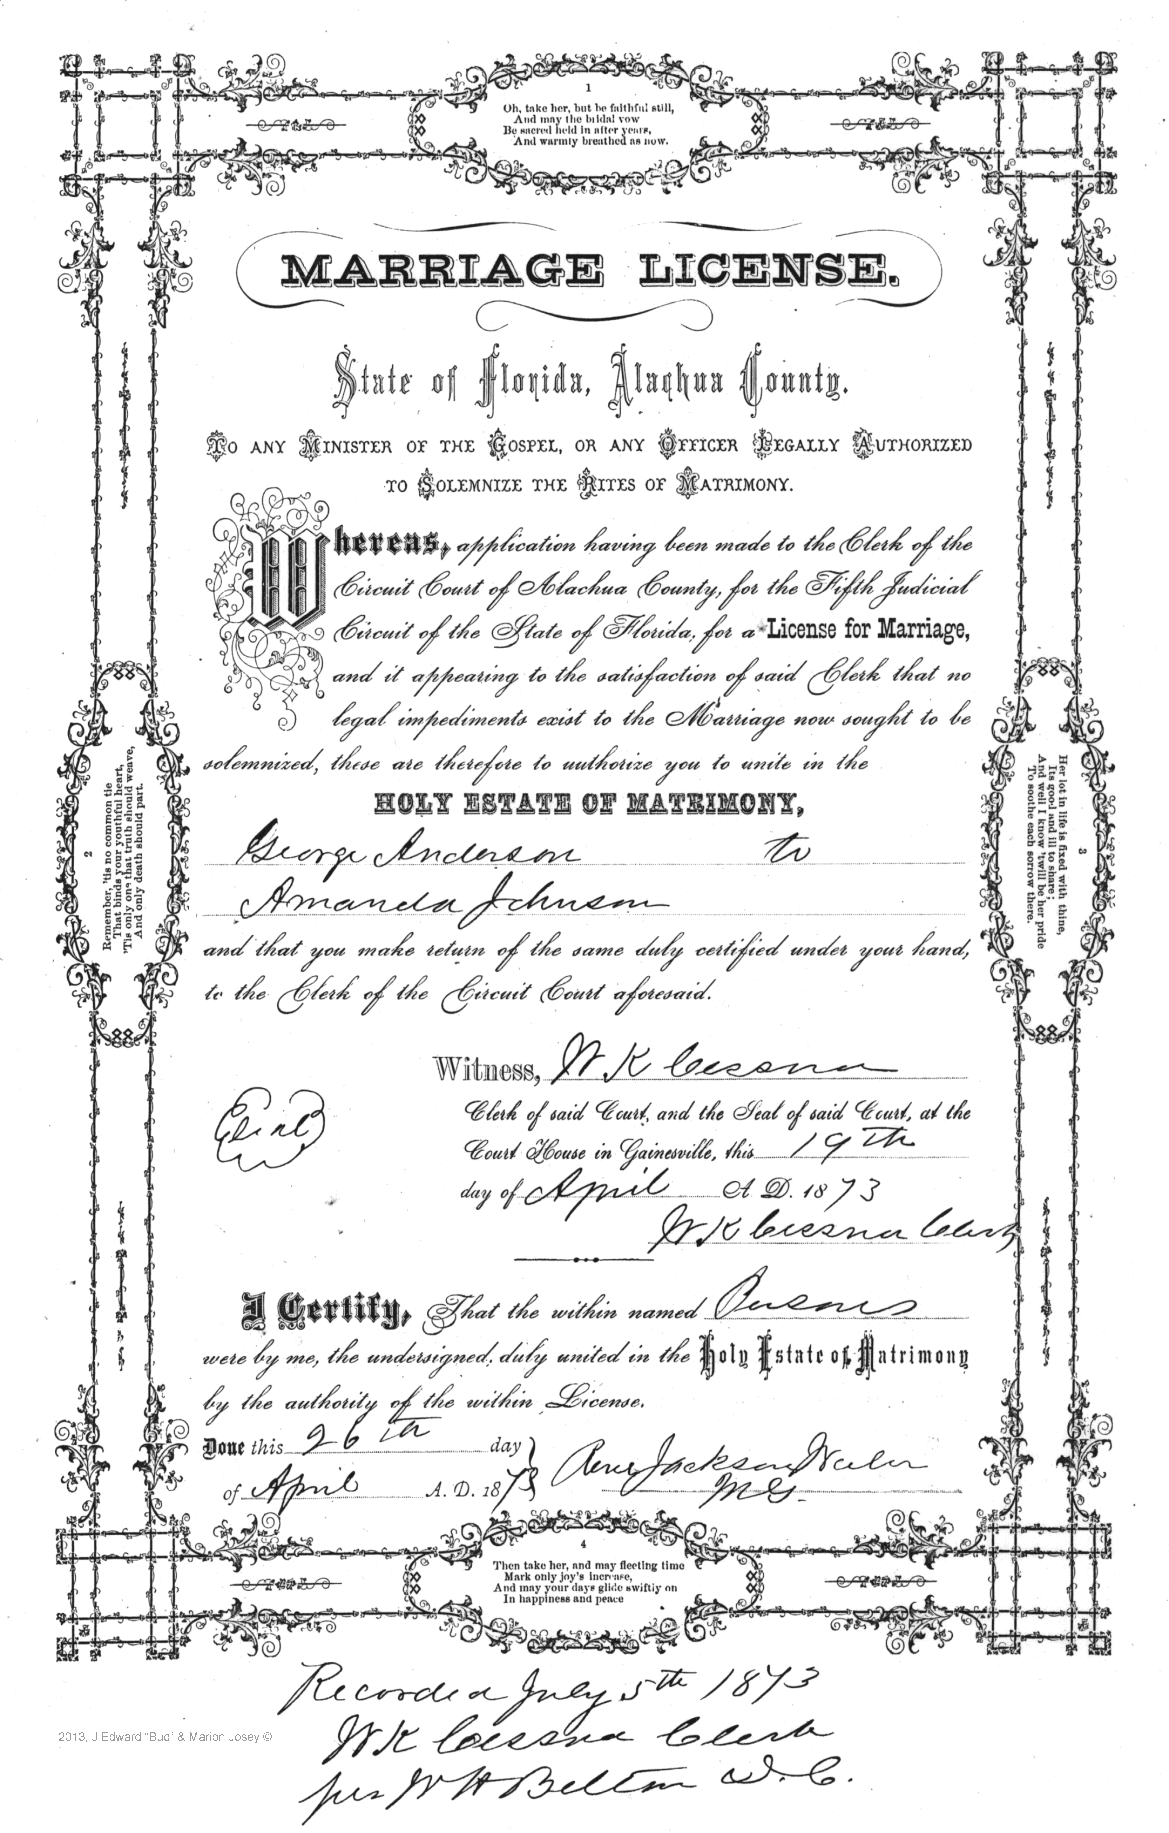 1
Oh, take her, but be faithful still,
And may the bridal vow
Be sacred held in after years,
And warmly breathed as now.
MARRIAGE LICENSE.
State of Florida, Alachua County.
TO ANY MINISTER OF THE GOSPEL, OR ANY OFFICER LEGALLY AUTHORIZED
TO SOLEMNIZE THE RITES OF MATRIMONY.
Whereas, application having been made to the Clerk of the
Circuit Court of Alachua County, for the Fifth Judicial
Circuit of the State of Florida, for a License for Marriage,
and it appearing to the satisfaction of said Clerk that no
legal impediments exist to the Marriage now sought to be
solemnized, these are therefore to authorize you to unite in the
HOLY ESTATE OF MATRIMONY,
George Anderson to
Amanda Johnson
and that you make return of the same duly certified under your hand,
to the Clerk of the Circuit Court aforesaid.
2
Remember, 'tis no common tie
That binds your youthful heart,
'Tis only one that truth should weave,
And only death should part.
3
Her lot in life is fixed with thine,
Its good and ill to share;
And well I know 'twill be her pride
To soothe each sorrow there.
Witness, W K Cessna
Seal
Clerk of said Court, and the Seal of said Court, at the
Court House in Gainesville, this 19th
day of April A. D. 1873
W K Cessna Clerk
I Certify, That the within named Persons
were by me, the undersigned, duly united in the Holy Estate of Matrimony
by the authority of the within License.
Done this 26th day
of April A. D. 1873
Jackson
M G.
4
Then take her, and may fleeting time
Mark only joy's increase,
And may your days glide swiftly on
In happiness and peace
Recorded July 5th 1873
W K Cessna Clerk
per W H Belton D. C.
2013, J Edward "Bud" & Marion Josey ©